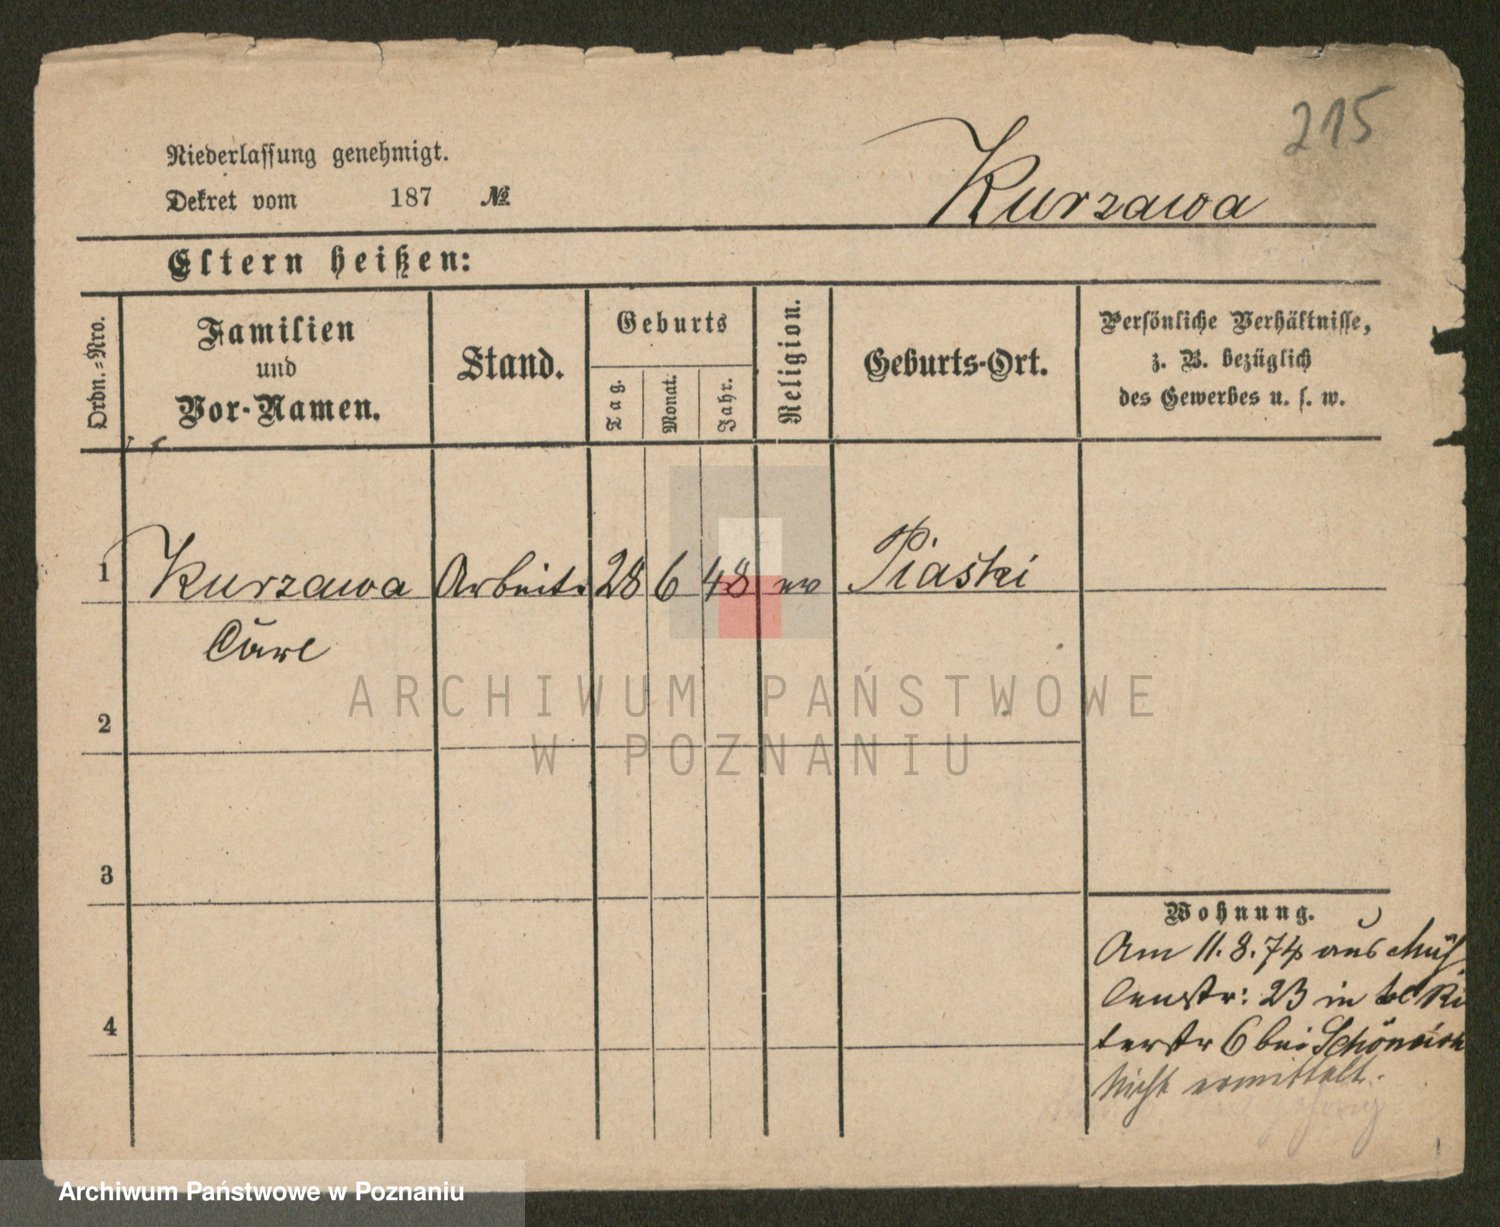 215
Niederlassung genehmigt.
Dekret vom 187 №
Kurzawa
Eltern heißen:
Ordn.=Nro.
Familien
und
Vor-Namen.
Stand.
Geburts
Tag.
Monat.
Jahr.
Religion.
Geburts-Ort.
Persönliche Verhältnisse,
z. B. bezüglich
des Gewerbes u. s. w.
1 Kurzawa Arbeitr 28 6 48 ev Piaski
Carl
2
3
4
Wohnung.
Am 11.8.74 aus Müh
lenstr: 23 in kl Ri
terstr 6 bei
Nicht ermittelt.
ARCHIWUM PAŃSTWOWE
W POZNANIU
Archiwum Państwowe w Poznaniu